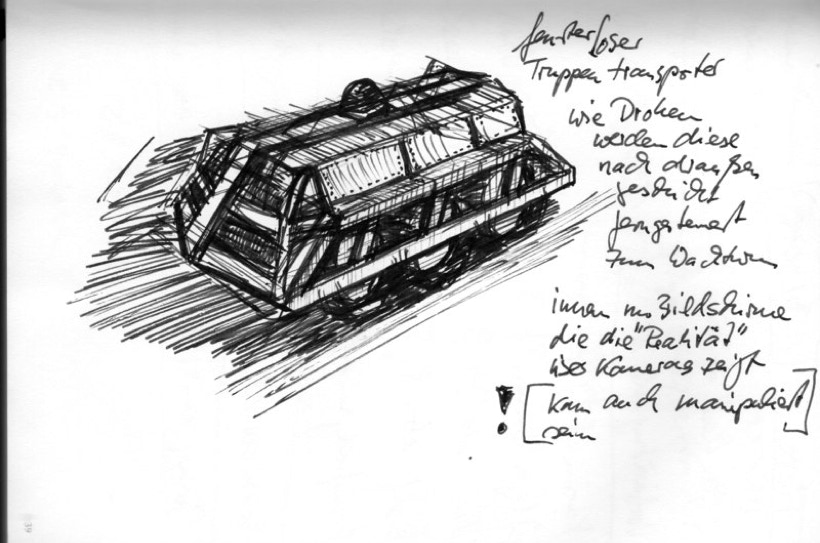 fensterloser
Truppentransporter
wie Drohen
werden diese
nach draußen
geschickt
ferngesteuert
zum Wachturm
innen nur Bildschirme
die die "Realität"
über Kameras zeigt
! [kann auch manipuliert
sein]
39